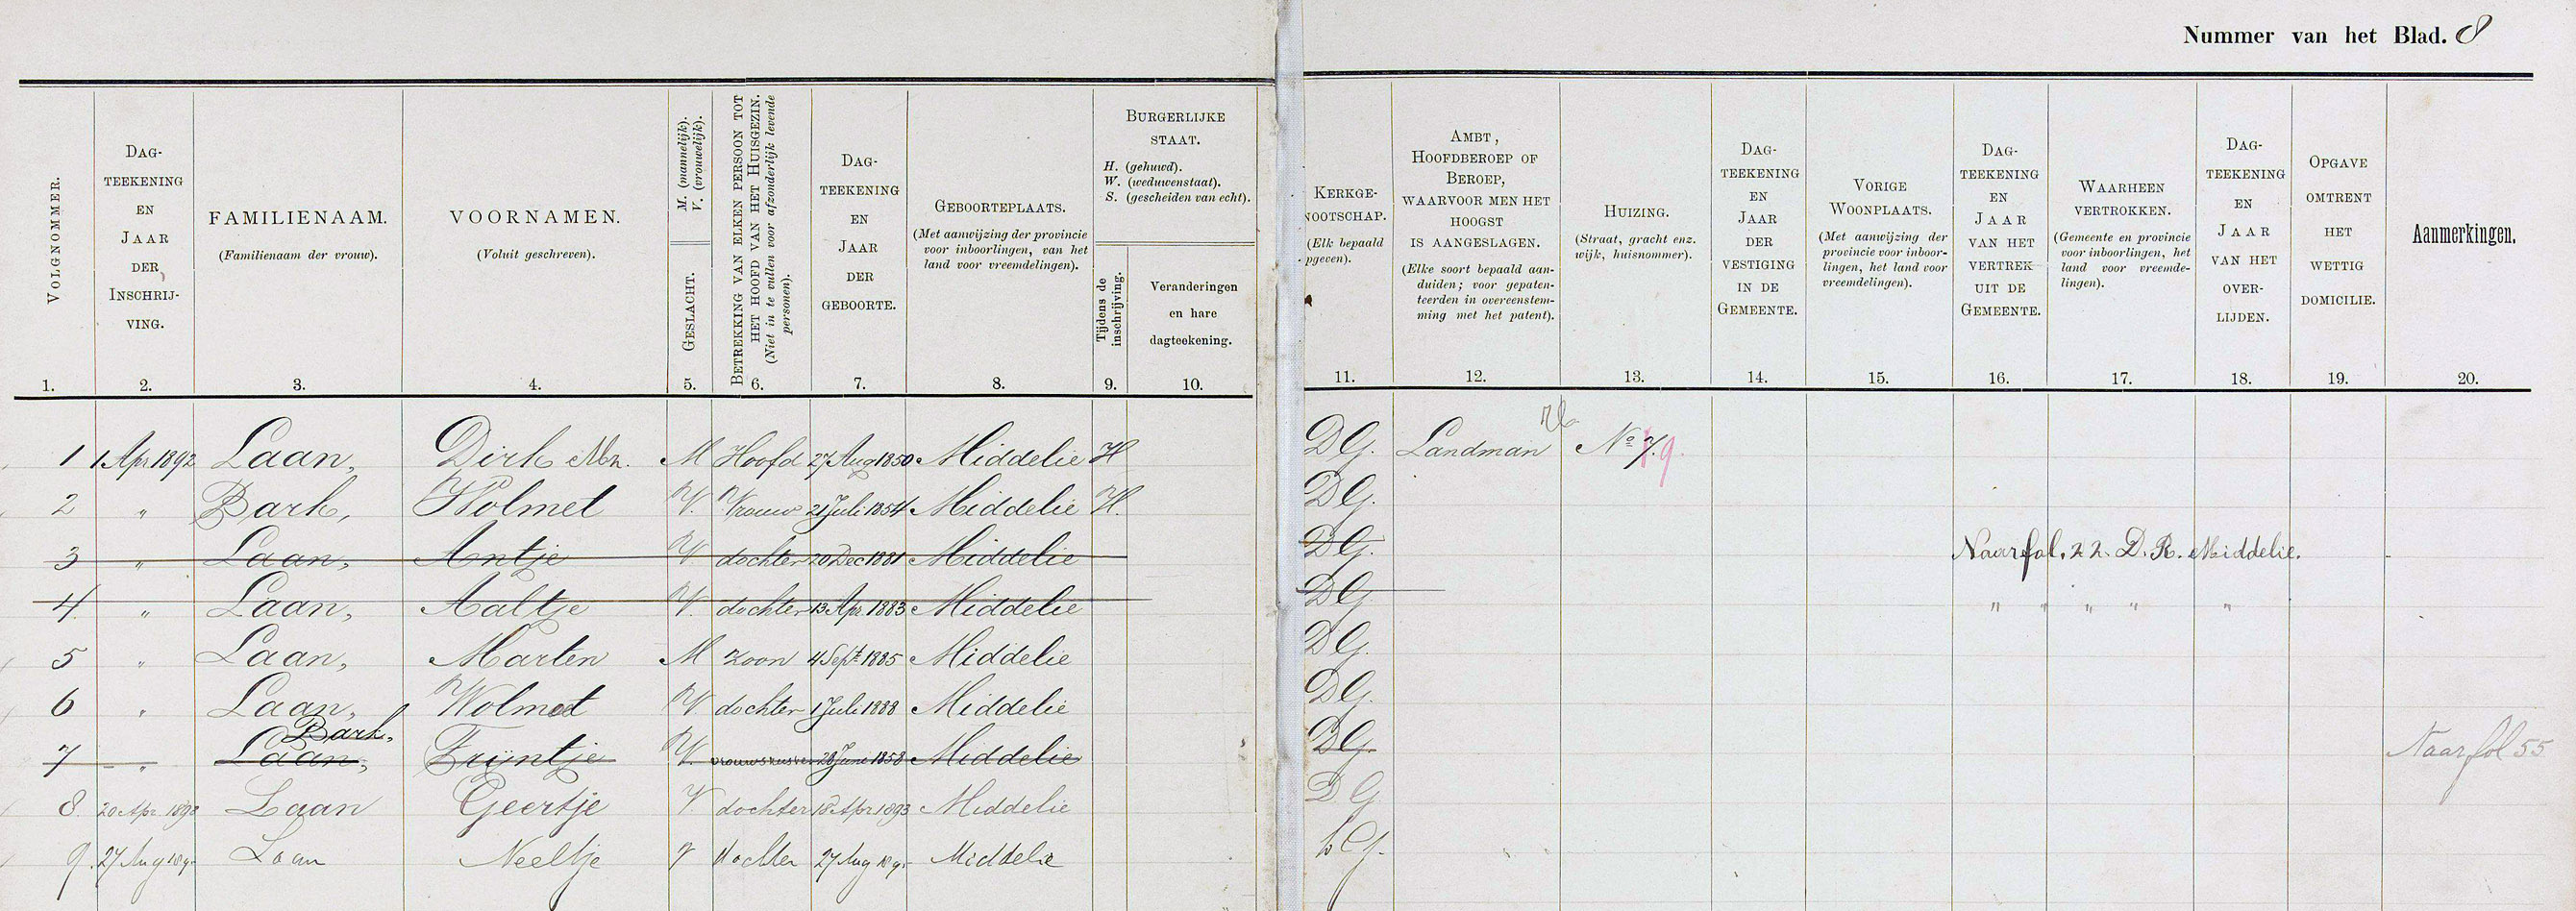 Nummer van het Blad. 8
VOLGNOMMER.
DAG-
TEEKENING
EN
JAAR
DER
INSCHRIJ-
VING.
FAMILIENAAM.
(Familienaam der vrouw).
VOORNAMEN.
(Voluit geschreven).
M. (mannelijk).
V. (vrouwelijk).
GESLACHT.
BETREKKING VAN ELKEN PERSOON TOT
HET HOOFD VAN HET HUISGEZIN.
(Niet in te vullen voor afzonderlijk levende
personen).
DAG-
TEEKENING
EN
JAAR
DER
GEBOORTE.
GEBOORTEPLAATS.
(Met aanwijzing der provincie
voor inboorlingen, van het
land voor vreemdelingen).
BURGERLIJKE
STAAT.
H. (gehuwd).
W. (weduwenstaat).
S. (gescheiden van echt).
Tijdens de
inschrijving.
Veranderingen
en hare
dagteekening.
KERKGE-
NOOTSCHAP.
(Elk bepaald
pgeven).
AMBT,
HOOFDBEROEP OF
BEROEP,
WAARVOOR MEN HET
HOOGST
IS AANGESLAGEN.
(Elke soort bepaald aan-
duiden; voor gepaten-
teerden in overeenstem-
ming met het patent).
HUIZING.
(Straat, gracht enz.
wijk, huisnommer).
DAG-
TEEKENING
EN
JAAR
DER
VESTIGING
IN DE
GEMEENTE.
VORIGE
WOONPLAATS.
(Met aanwijzing der
provincie voor inboor-
lingen, het land voor
vreemdelingen).
DAG-
TEEKENING
EN
JAAR
VAN HET
VERTREK
UIT DE
GEMEENTE.
WAARHEEN
VERTROKKEN.
(Gemeente en provincie
voor inboorlingen, het
land voor vreemde-
lingen).
DAG-
TEEKENING
EN
JAAR
VAN HET
OVER-
LIJDEN.
OPGAVE
OMTRENT
HET
WETTIG
DOMICILIE.
Aanmerkingen.
1. 2. 3. 4. 5. 6. 7. 8. 9. 10. 11. 12. 13. 14. 15. 16. 17. 18. 19. 20.
1 1 Apr 1892 Laan, Dirk Mn. M Hoofd 27 Aug 1850 Middelie H DG. Landman No 7. 9.
2 " Bark, Wolmet V. Vrouw 21 Juli 1854 Middelie H. DG.
3 " Laan, Antje V dochter 20 Dec 1881 Middelie DG. Naar fol. 22. D. R. Middelie.
4. " Laan, Aaltje V. dochter 13 Apr. 1883 Middelie DG " " " " "
5 " Laan, Marten M zoon 4 Sept 1885 Middelie DG.
6 " Laan, Wolmet V dochter 1 Juli 1888 Middelie DG.
Bark,
7 " Laan, Trijntje V. vrouwszuster 28 Juni 1858 Middelie DG. Naar fol 55
8. 20 Apr. 1893 Laan Geertje V. dochter 18 Apr 1893 Middelie DG
9. 27 Aug Laan Neeltje V dochter 27 Aug Middelie